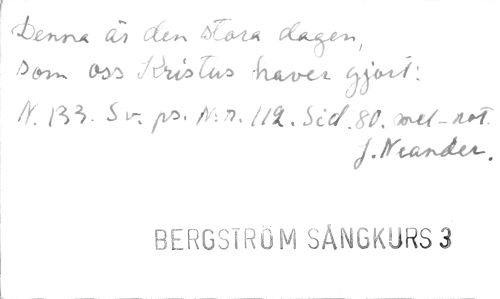 Denna är den stora dagen,
som oss Kristus haver gjort:
N. 133. Sv. ps. N:r. 112. Sid. 80. mel-not.
J. Neander.
BERGSTRÖM SÅNGKURS 3